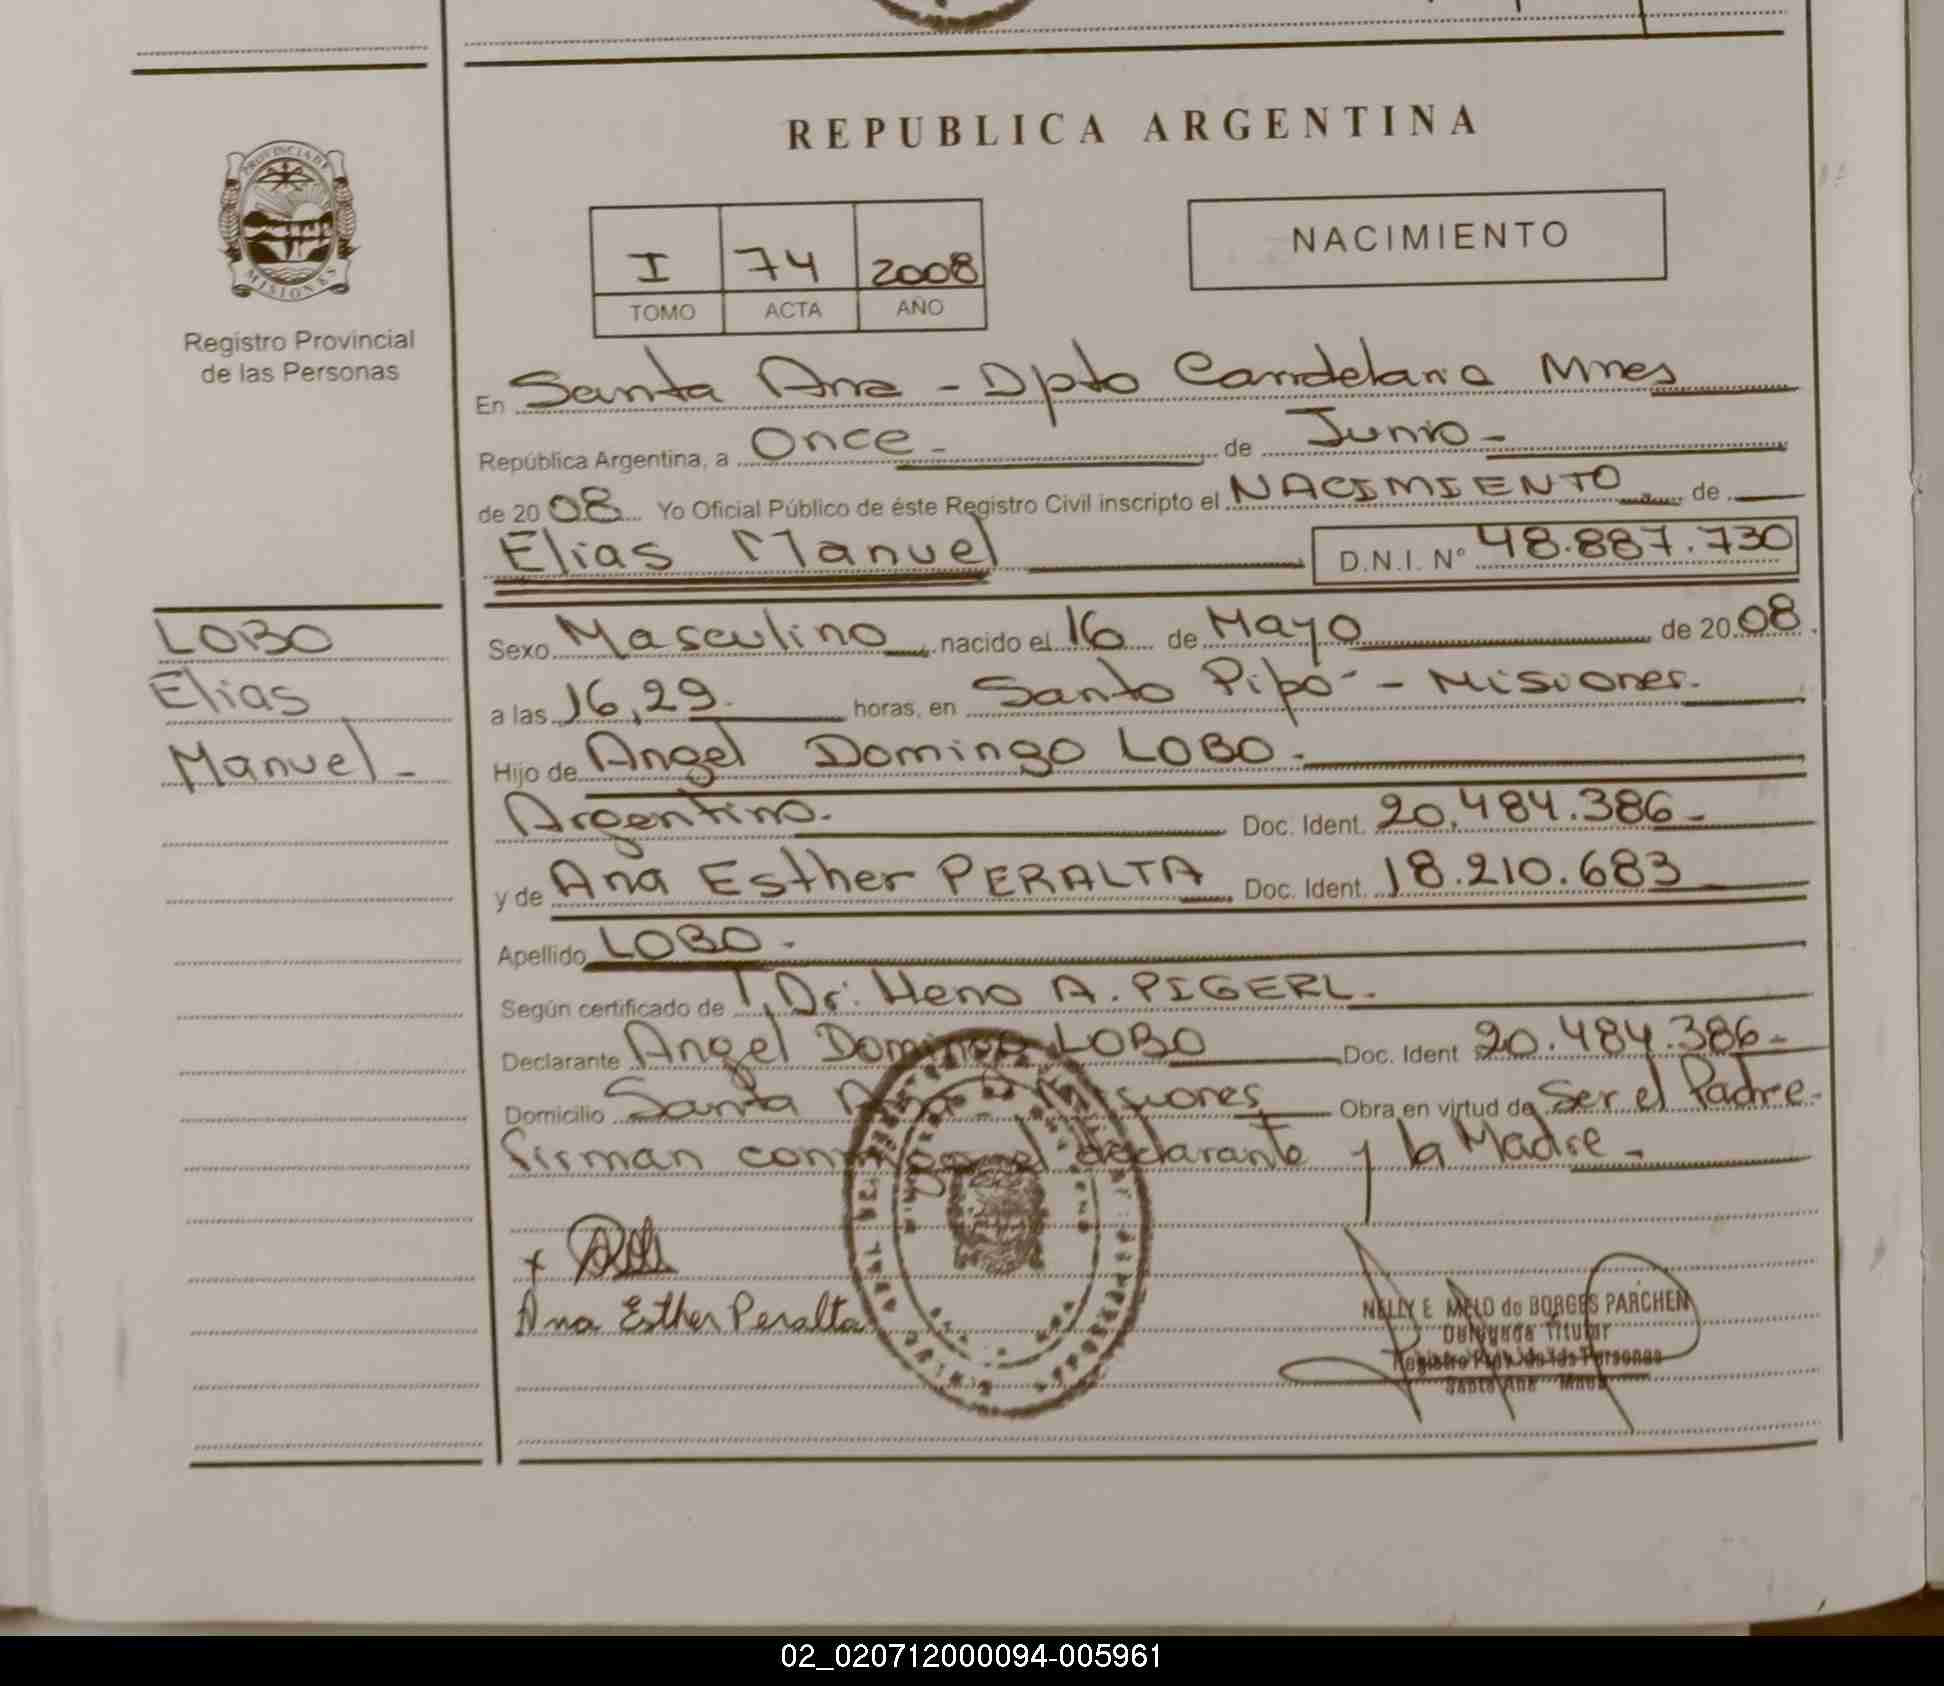 REPUBLICA ARGENTINA
PROVINCIA DE
MISIONES
Registro Provincial
de las Personas
I 74 2008
TOMO ACTA AÑO
NACIMIENTO
En Santa Ana - Dpto Candelaria Mnes
República Argentina, a Once - de Junio -
de 2008 Yo Oficial Público de éste Registro Civil inscripto el NACIMIENTO de
Elias Manuel D.N.I. Nº 48.887.730
LOBO
Elias
Manuel -
Sexo Masculino nacido el 16 de Mayo de 2008
a las 16,29 horas, en Santo Pipó - Misiones.
Hijo de Angel Domingo LOBO.
Argentino. Doc. Ident. 20.484.386 -
y de Ana Esther PERALTA Doc. Ident. 18.210.683
Apellido LOBO -
Según certificado de Dr. Heno A. PIGERL.
Declarante Angel Domingo LOBO Doc. Ident 20.484.386 -
Domicilio Santa Ana - Misiones Obra en virtud de Ser el Padre.
firman conmigo el declarante y la Madre -
x
Ana Esther Peralta
NELLY E. MELO de BORGES PARCHEN
Delegada Titular
Registro Prov. de las Personas
Santa Ana Mnes
02_020712000094-005961